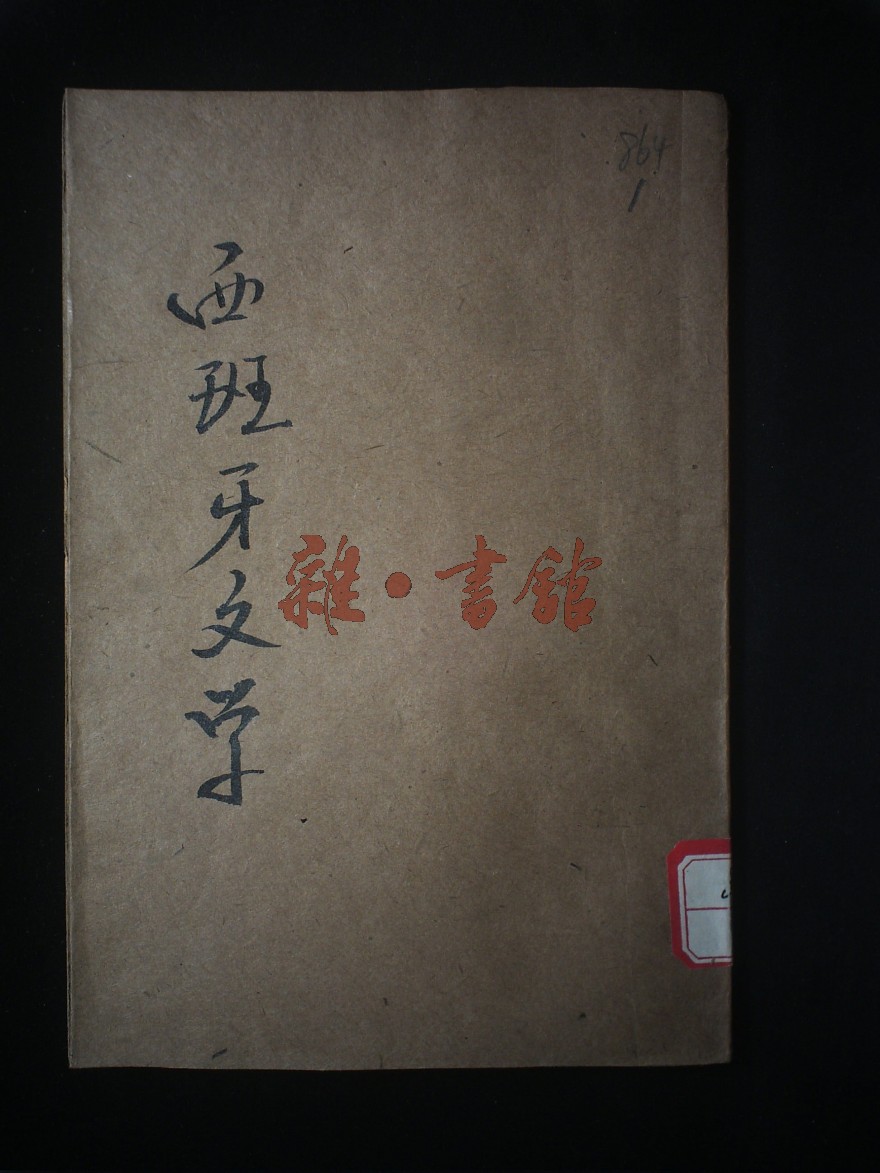 864
1
西班牙文学
雜·書館